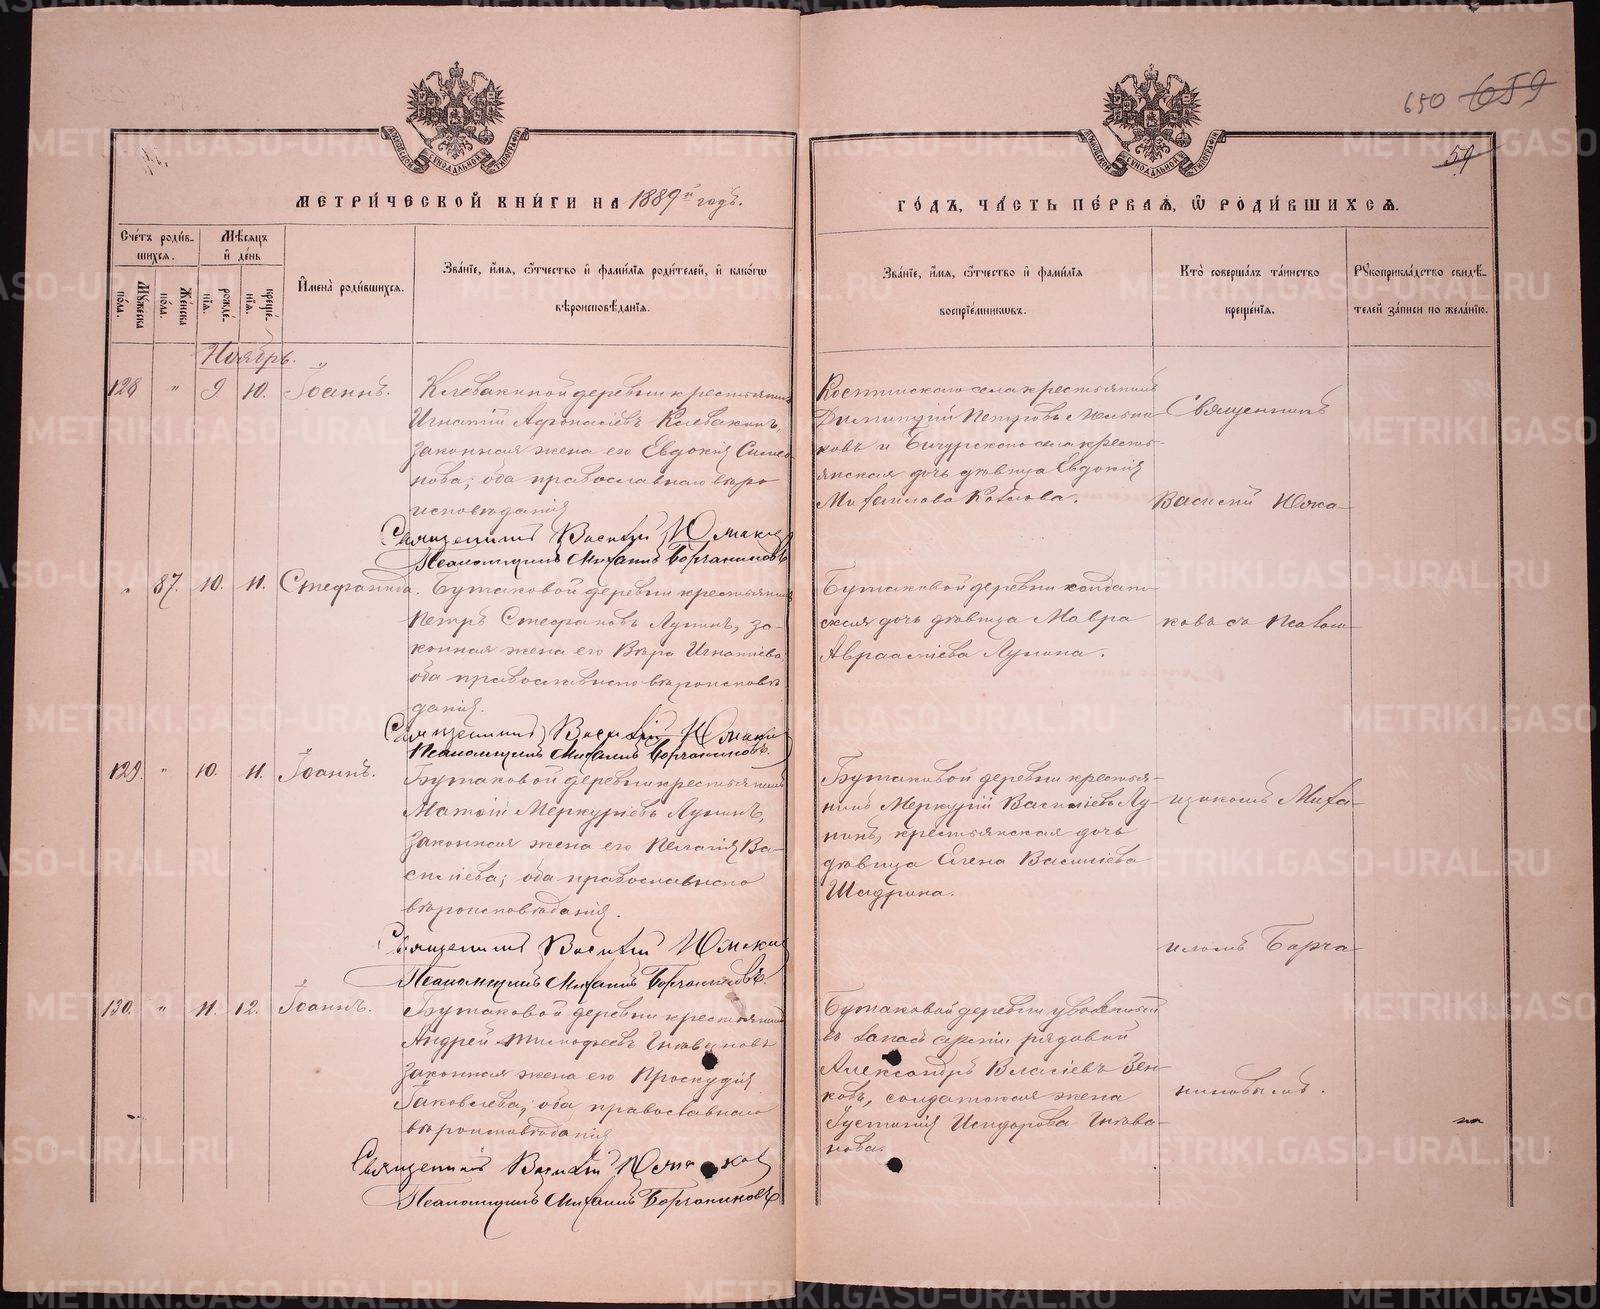 650 659
59
МЕТРИ́ЧЕСКОЙ КНИ́ГИ НА 1889й годъ.
ГО́ДЪ, ЧА́СТЬ ПЕ́РВАѦ, Ѿ РОДИ́ВШИХСѦ.
Сче́тъ роди́в-
шихсѧ.
Мѹжеска по́ла.
Же́нска по́ла.
Мѣ́сѧцъ
и҆ де́нь
рожде́-нїѧ.
креще́-нїѧ.
И҆мена̀ роди́вшихсѧ.
Зва́нїе, и҆́мѧ, ѻ҆́тчество и҆ фами́лїѧ роди́телей, и҆ како́гѡ
вѣроисповѣ́данїѧ.
Зва́нїе, и҆́мѧ, ѻ҆́тчество и҆ фами́лїѧ
воспрїе́мникѡвъ.
Кто̀ соверша́лъ та́инство
креще́нїѧ.
Рѹкоприкла́дство свидѣ́-
телей за́писи по жела́нїю.
Ноябрь.
128 " 9 10. Іоаннъ.
Клевакиной деревни крестьянинъ
Игнатій Афонасіевъ Клевакинъ,
законная жена его Евдокія Симео
нова; оба православнаго вѣро
исповѣданія
Священникъ Василій Южаков
Псаломщикъ Михаилъ Борчаниновъ
Костинскаго села крестьянинъ
Димитрій Петровъ Мельни-
ковъ и Бичурскаго села крестья-
янская дочь дѣвица Евдокія
Михаилова Котлова.
Священникъ
Василій Южа-
" 87. 10. 11. Стефанида.
Бутаковой деревни крестьянинъ
Петръ Стефановъ Лунинъ, за-
конная жена его Вѣра Игнатіева,
оба православнаго вѣроисповѣ
данія.
Священникъ Василій Южаков
Псаломщикъ Михаилъ Борчаниновъ.
Бутаковой деревни солдат-
ская дочь дѣвица Мавра
Авраамiева Лунина.
ковъ съ псалом-
129. " 10. 11. Іоаннъ.
Бутаковой деревни крестьянинъ
Матѳій Меркуріевъ Лунинъ,
законная жена его Пелагія Ва-
силіева; оба православнаго
вѣроисповѣданія.
Священникъ Василій Южаков
Псаломщикъ Михаилъ Борчаниновъ.
Бутаковой деревни крестья-
нинъ Меркурій Василіевъ Лу-
нинъ, крестьянская дочь
дѣвица Елена Василіева
Шадрина.
щикомъ Миха-
иломъ Борча-
130. " 11. 12. Іоаннъ.
Бутаковой деревни крестьянинъ
Андрей Тимофеевъ
законная жена его Проскудія
Іаковлева; оба православнаго
вѣроисповѣданія
Священникъ Василій Южаков
Псаломщикъ Михаилъ Борчаниновъ
Бутаковой деревни уволенный
въ запасъ арміи рядовой
Александръ Власіевъ Зен-
ковъ, солдатская жена
Іустинія Исидорова
нова.
ниновымъ.